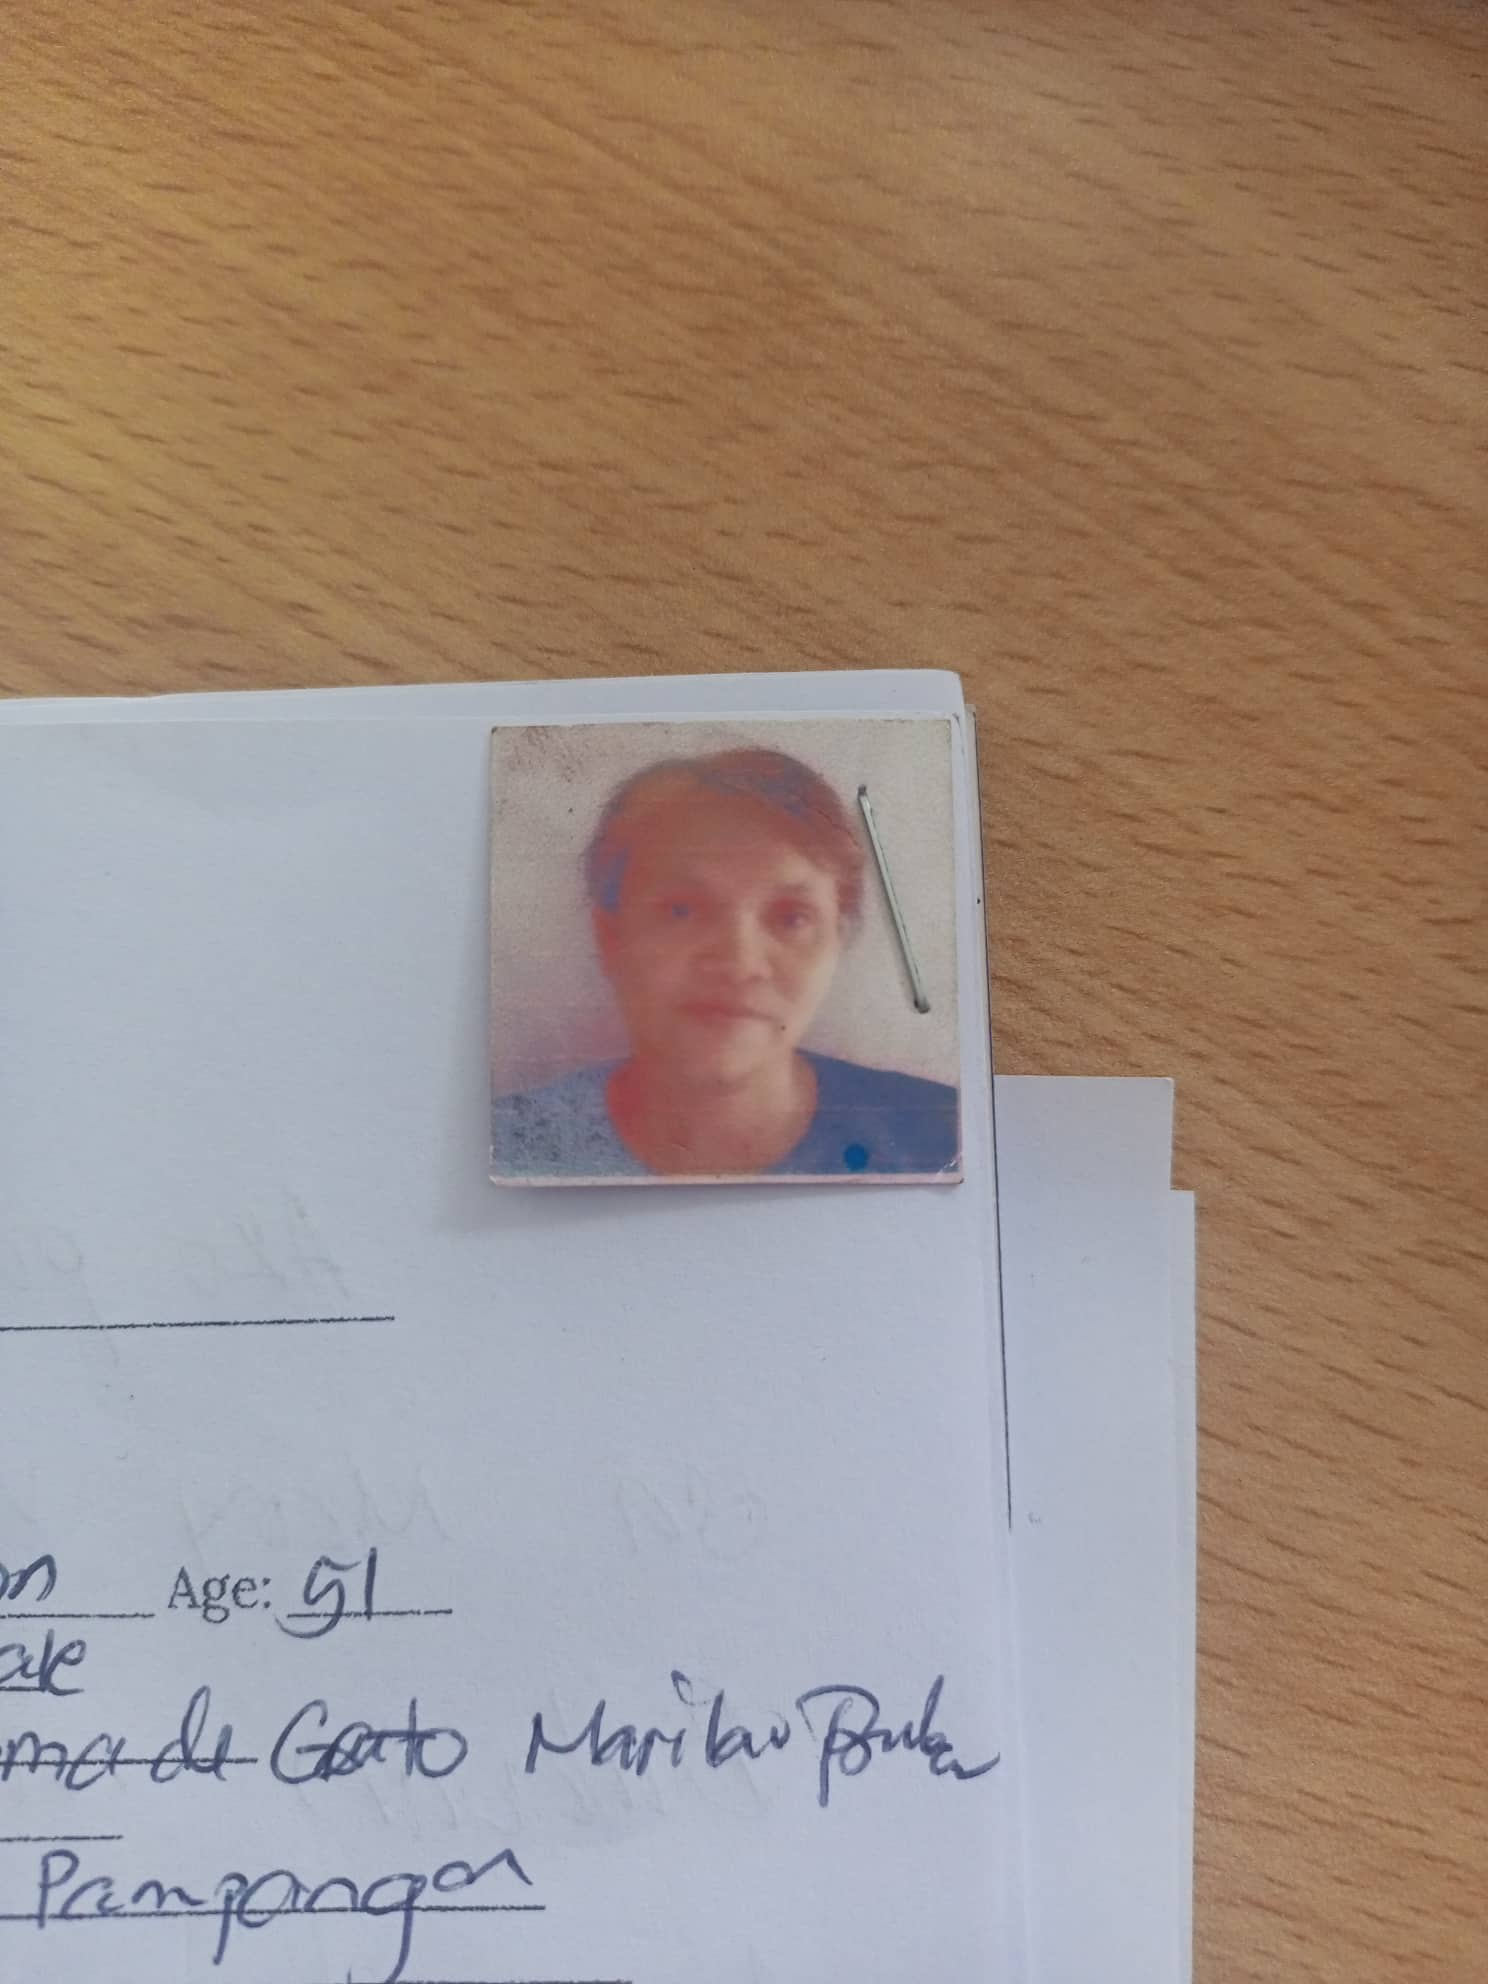 on Age: 51
ale
ma de Gato Marilao Bula
Pampanga